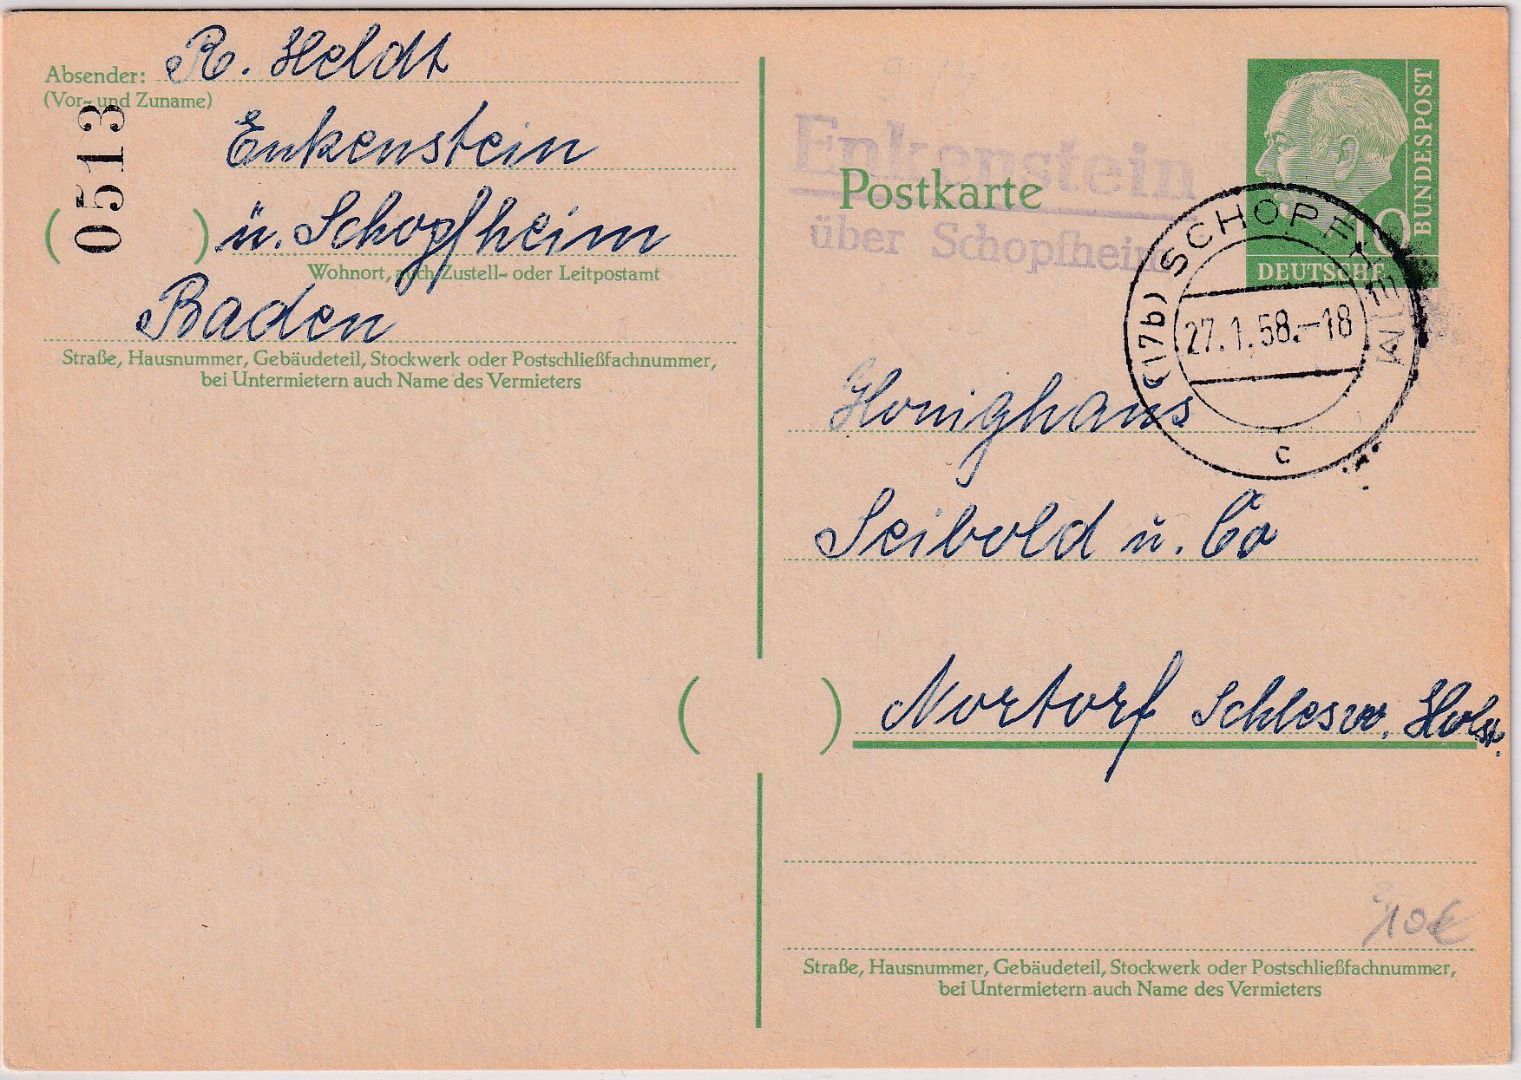 Absender: R. Heldt
(Vor- und Zuname)
Enkenstein
( ) ü. Schopfheim
Wohnort, auch Zustell- oder Leitpostamt
Baden
Straße, Hausnummer, Gebäudeteil, Stockwerk oder Postschließfachnummer,
bei Untermietern auch Name des Vermieters
0513
Enkenstein
über Schopfheim
Postkarte
10
DEUTSCHE
BUNDESPOST
(17b) SCHOPFHEIM
27.1.58.-18
c
Honighaus
Seibold u. Co
( ) Nortorf Schlesw. Holst.
10€
Straße, Hausnummer, Gebäudeteil, Stockwerk oder Postschließfachnummer,
bei Untermietern auch Name des Vermieters